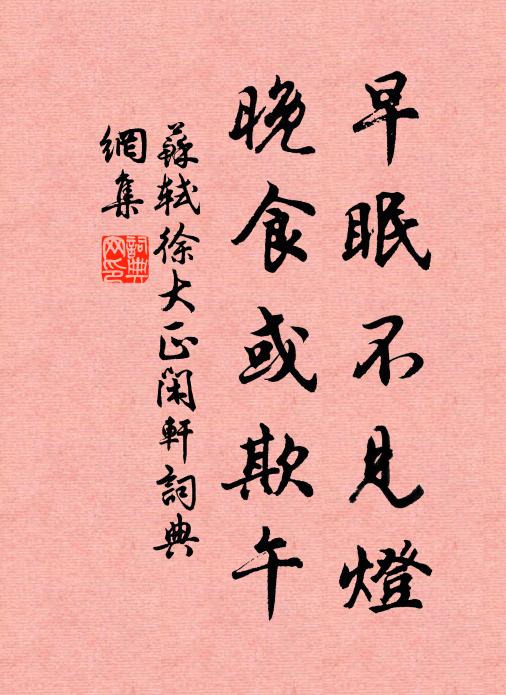 早眠不見燈
晚食或欺午
蘇軾徐大正閑軒詞典
網集
詞典網印